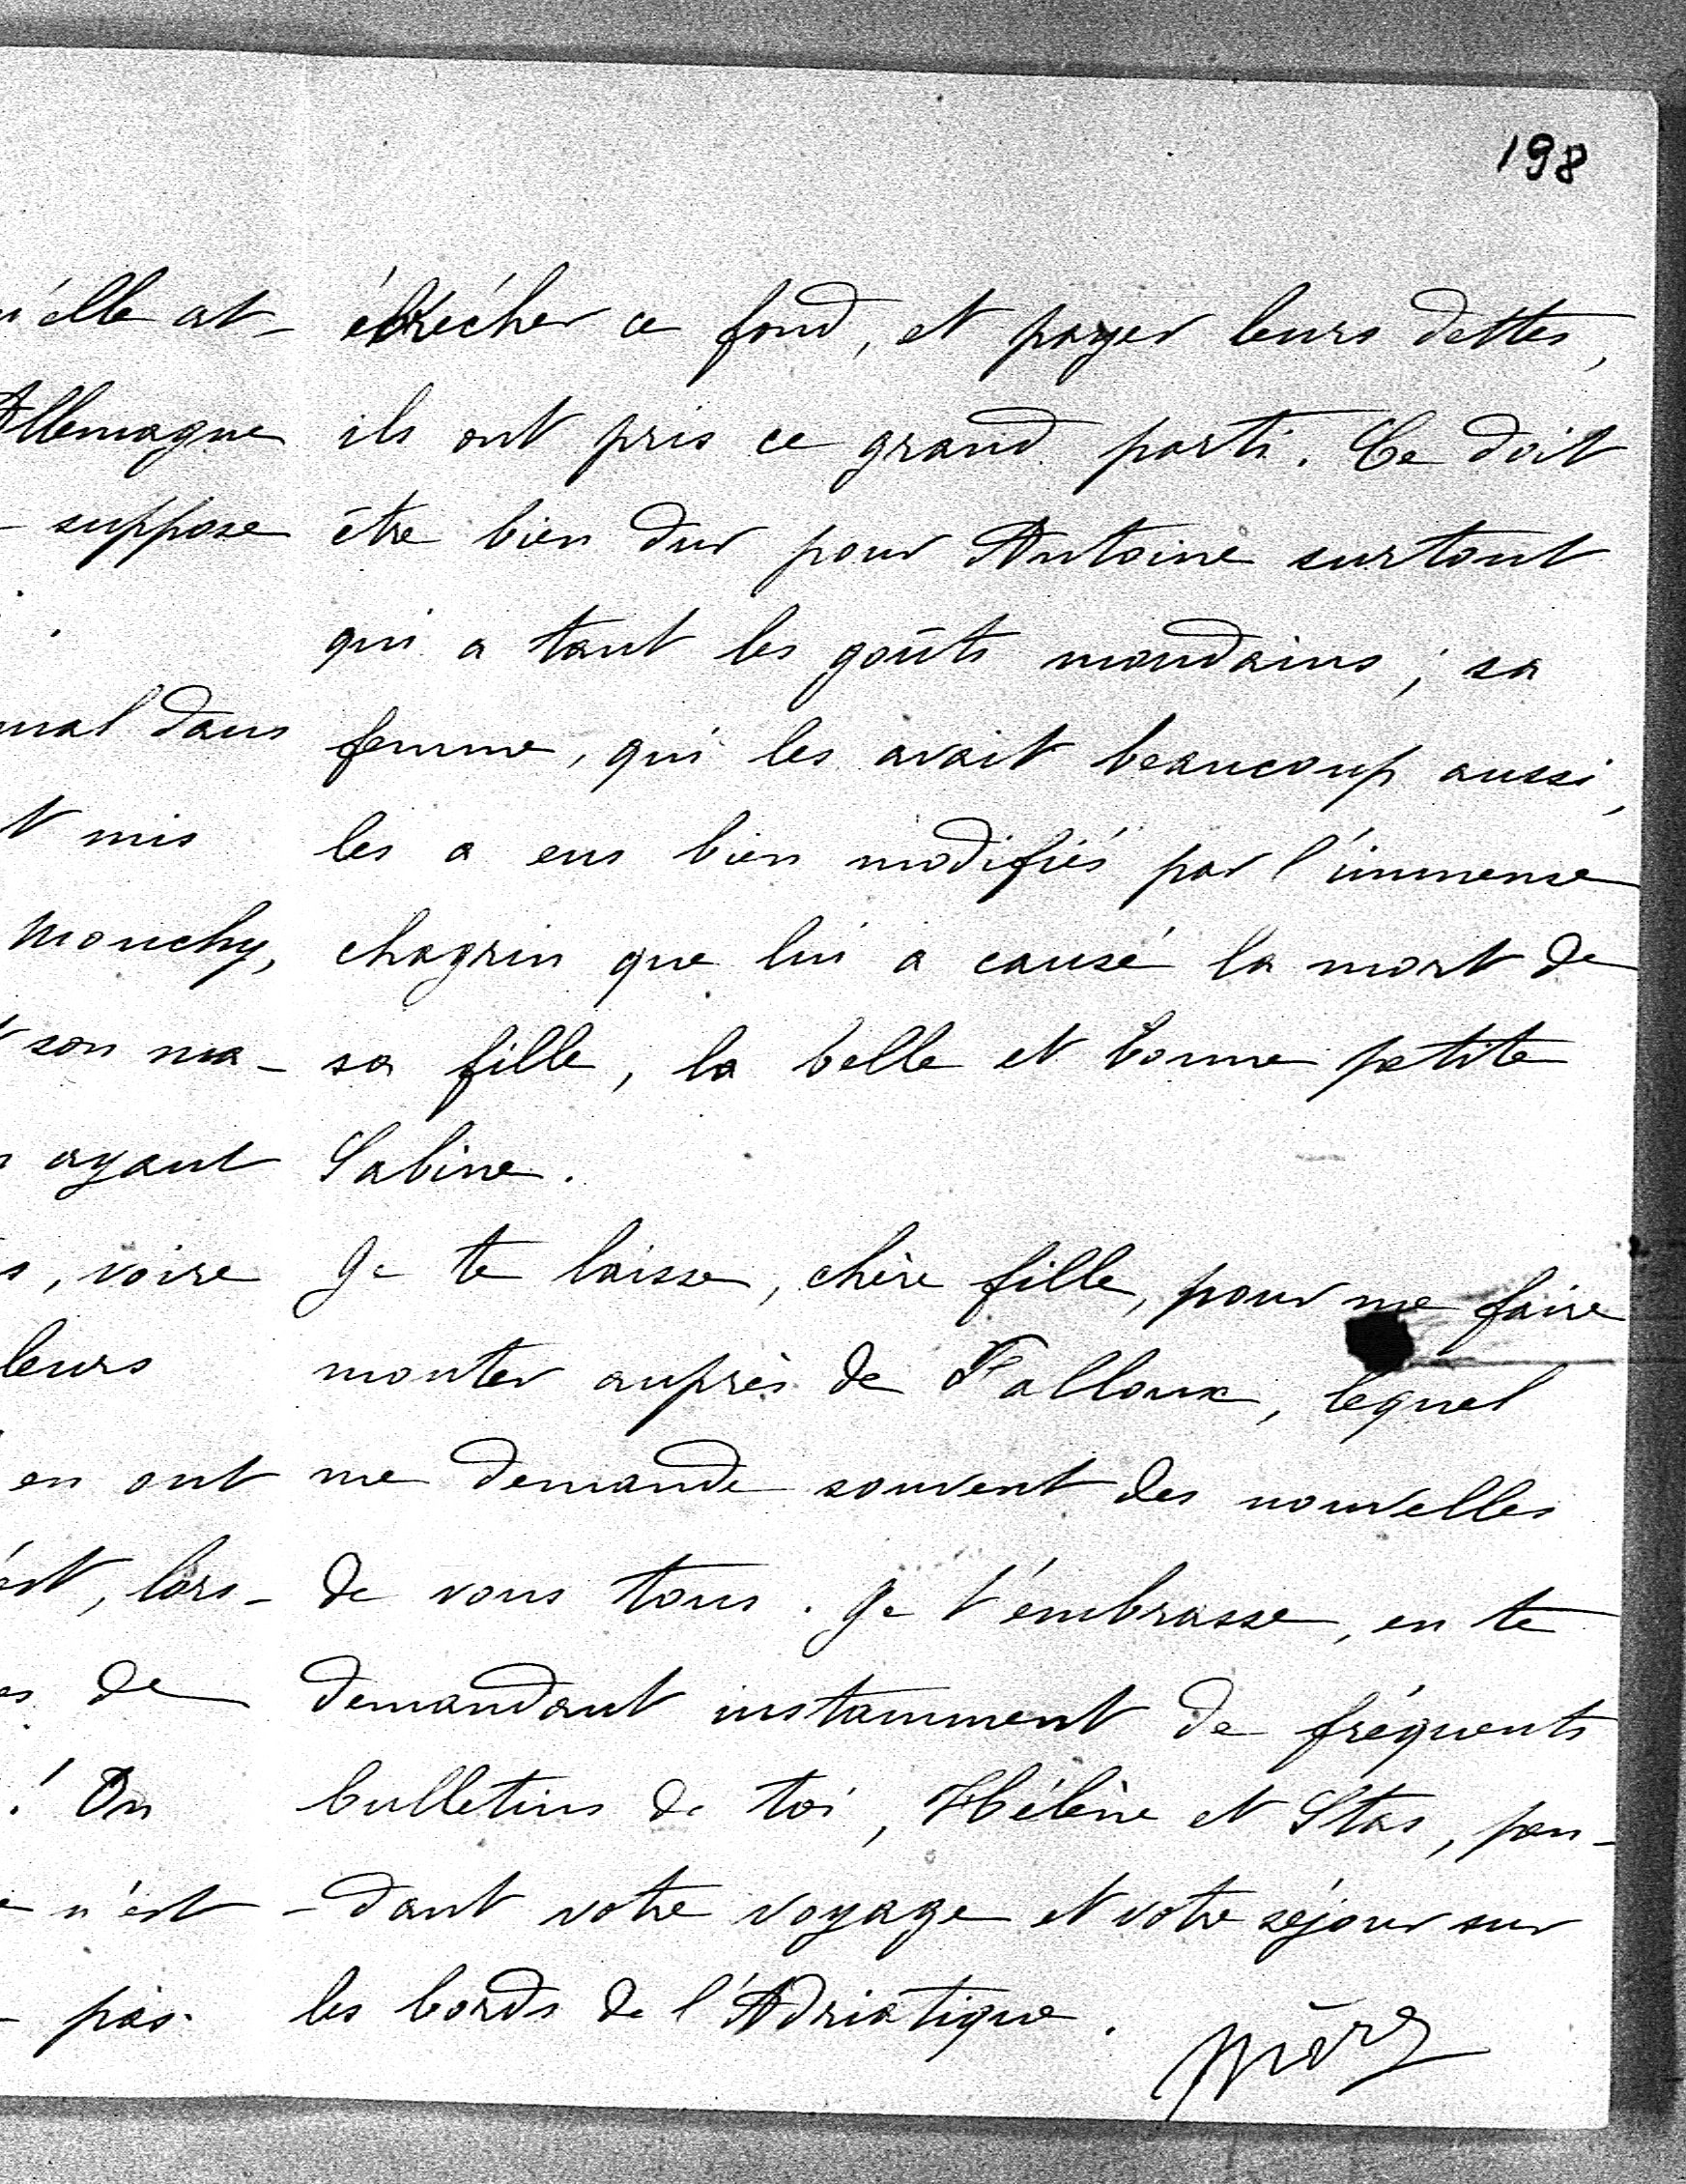 198
u'elle at-
Allemagne
suppose
mal dans
t mis
Mouchy,
son ma-
ayant
s, voire
leurs
en ont
est, lors-
es de
! On
n'est
pas
ébrécher ce fond, et payer leurs dettes,
ils ont pris ce grand parti. Ce doit
être bien dur pour Antoine surtout
qui a tant les goûts mondains ; sa
femme, qui les avait beaucoup aussi,
les a eus bien modifiés par l'immense
chagrin que lui a causé la mort de
sa fille, la belle et bonne petite
Sabine.
Je te laisse, chère fille, pour me faire
monter auprès de Falloux, lequel
me demande souvent des nouvelles
de vous tous. Je t'embrasse, en te
demandant instamment de fréquents
bulletins de toi, Hélène et Stas, pen-
-dant votre voyage et votre séjour sur
les bords de l'Adriatique.
Mère